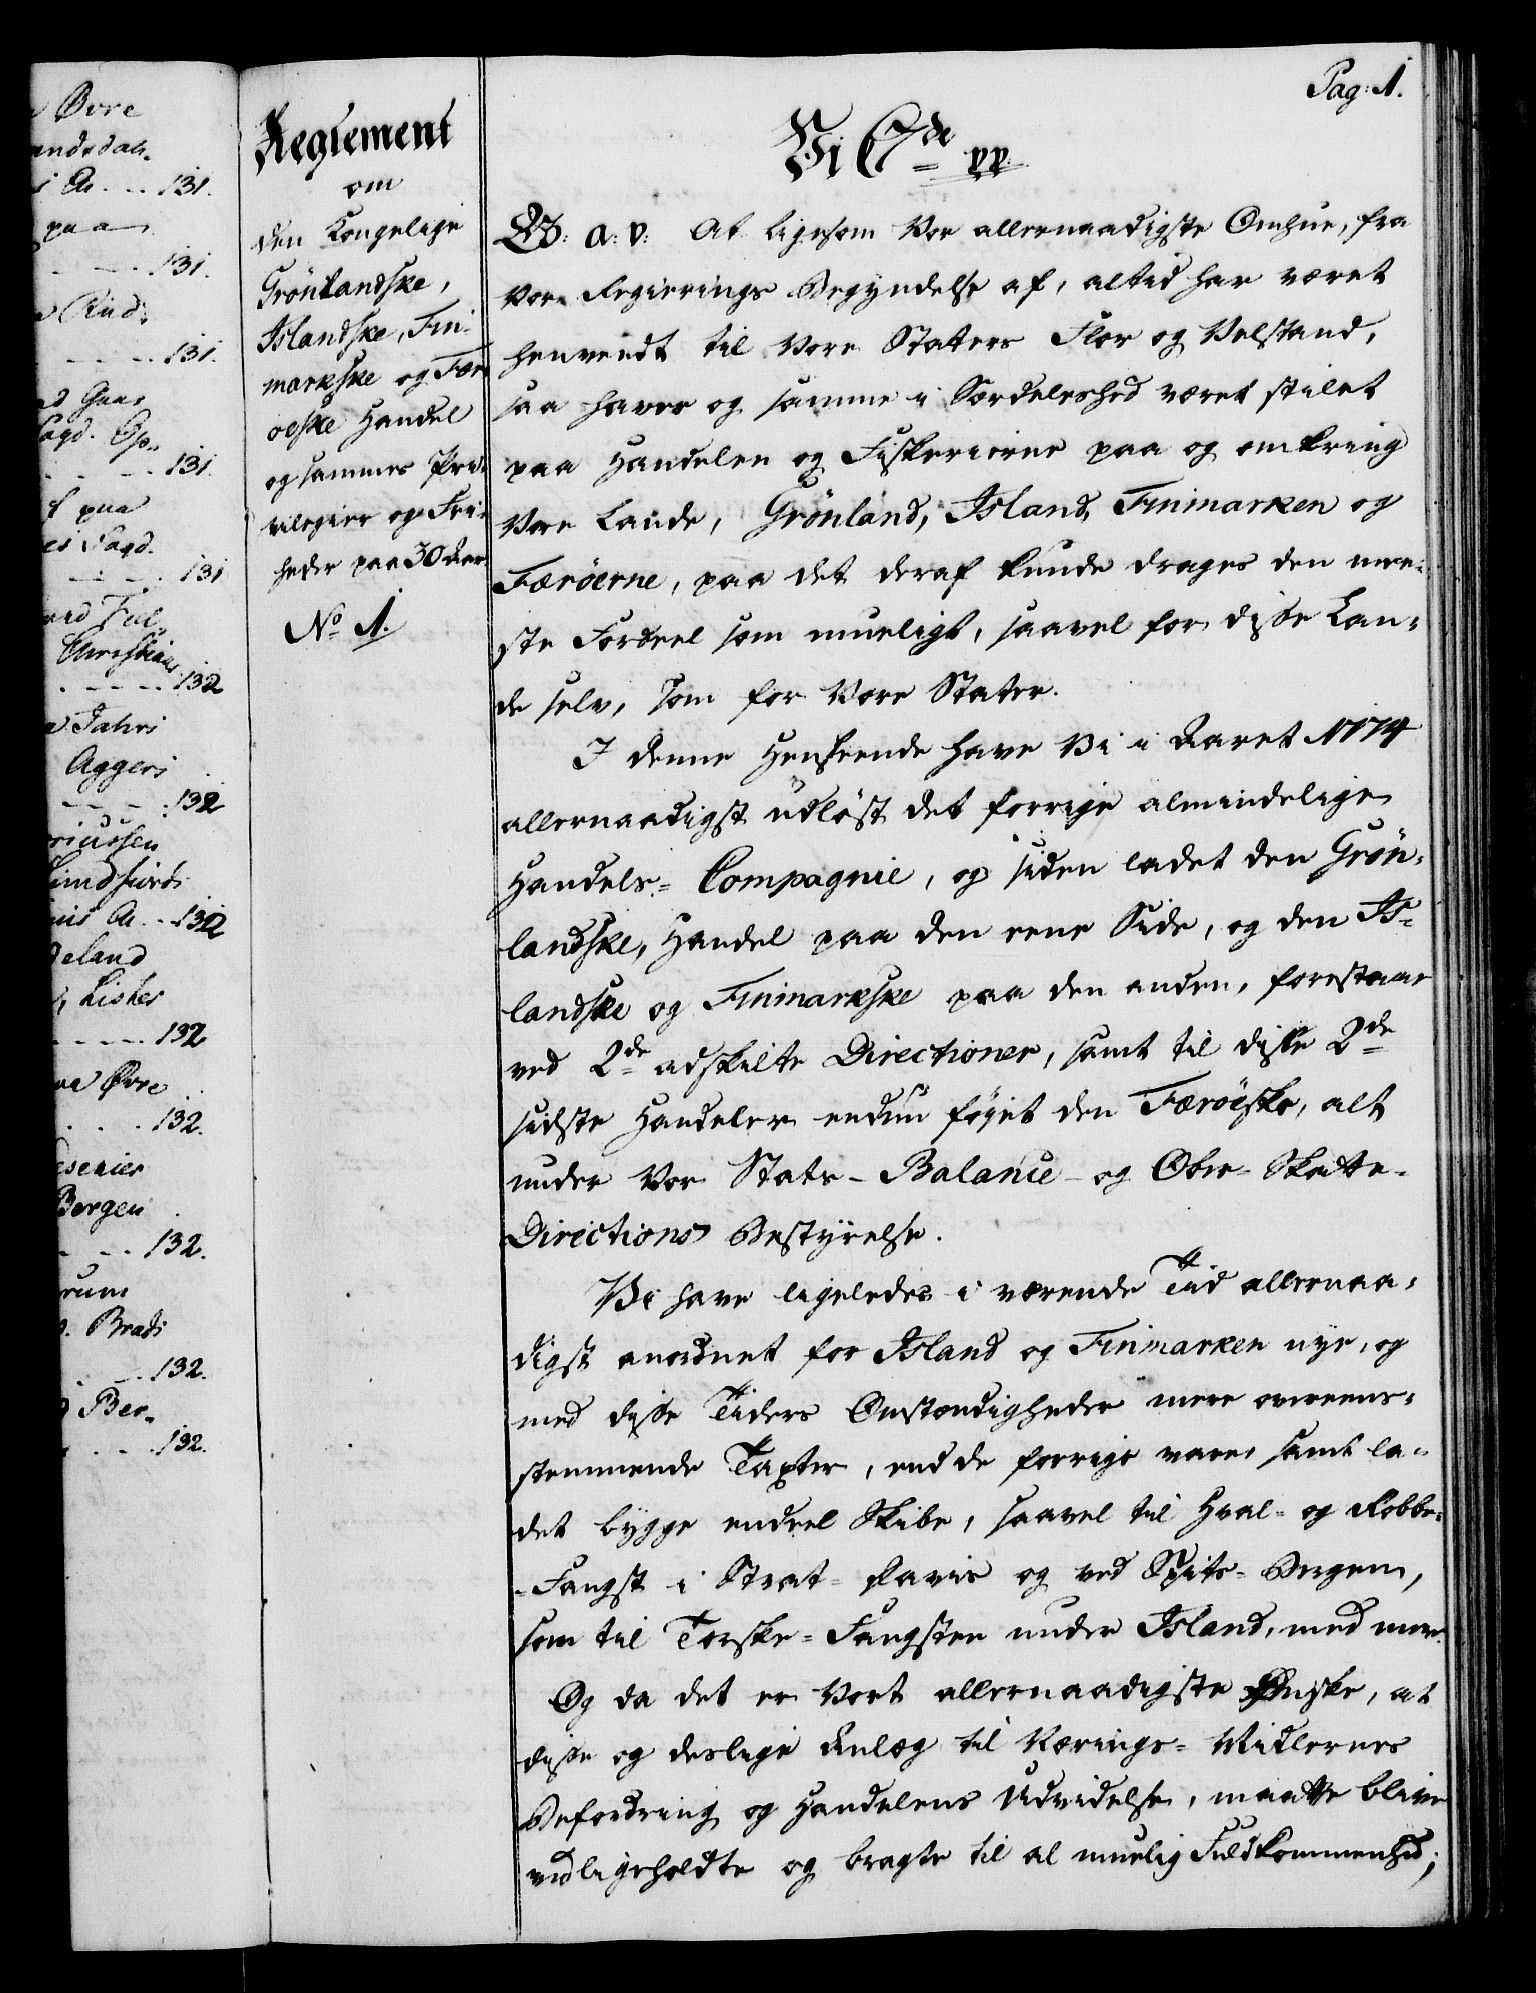 Øvre
andsdals
i A. . . . 131.
paa
. . . 131.
Rud.
. . . 131.
Gaar
Fogd. Op.
. . . 131.
f paa
es Fogd.
. . . 131
Christians
. . . 132
Tahri
Aggers
. . . 132
riussen
imdfiords
nis A. . 132
deland
Listes
. . . 132
Øvre
. . . 132.
Bergen
. . . 132.
rum
Brads
. . . 132.
Ber-
. . . 132.
Reglement
om
den Kongelige
Grönlandske,
Islandske, Fin-
markske og Fær-
oeske Handel
og sammes Pri-
vilegier og Fri-
heder paa 30 Aar
No 1.
Pag: 1.
Vi C 7de pp.
G: a: v: At ligesom Vor allernaadigste Omhue, fra
Vor Regierings Begyndelse af, altid har været
henvendt til Vore Staters Flor og Velstand,
saa haver og samme i Særdeleshed været stilet
paa Handelen og Fiskerierne paa og omkring
Vore Lande, Grönland, Island, Finmarken og
Færöerne, paa det deraf kunde drages den mee-
ste Fordeel som mueligt, saavel for disse Lan-
de selv, som for Vore Stater.
I denne Henseende have Vi i Aaret 1774
allernaadigst udlöst det forrige almindelige
Handels-Compagnie, og siden ladet den Grön-
landske, Handel paa den eene Side, og den Is-
landske og Finmarkske paa den anden, forestaae
ved 2de adskilte Directioner, samt til disse 2de
sidste Handeler endnu föjet den Færöeske, alt
under Vor Stats-Balance- og Over-Skatte-
Directions Bestyrelse.
Vi have ligeledes i værende Tid allernaa-
digst anordnet for Island og Finmarken nye, og
med disse Tiders Omstændigheder mere overeens-
stemmende Taxter, end de forrige vare, samt la-
det bygge endeel Skibe, saavel til Hval- og Robbe-
-Fangst i Strat-Davis og ved Spits-Bergen,
som til Torske-Fangsten under Island, med mere.
Og da det er Vort allernaadigste Ønske, at
disse og deslige Anlæg til Nærings-Midlernes
Befordring og Handelens Udvidelse, maatte blive
vedligeholdte og bragte til al muelig Fuldkommenhed;